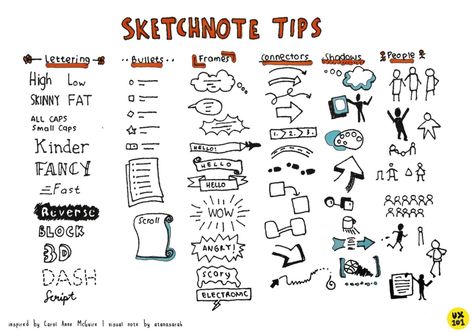 SKETCHNOTE TIPS
Lettering
Bullets
Frames
Connectors
Shadows
People
High Low
SKINNY FAT
ALL CAPS
Small Caps
Kinder
FANCY
Fast
Reverse
BLOCK
3D
DASH
Script
Scroll
HELLO!
HELLO
HELLO
WOW
ANGRY!
Scary
ELECTRONIC
1. 2. 3.
inspired by Carol Anne McGuire | visual note by atanasarah
UX
101